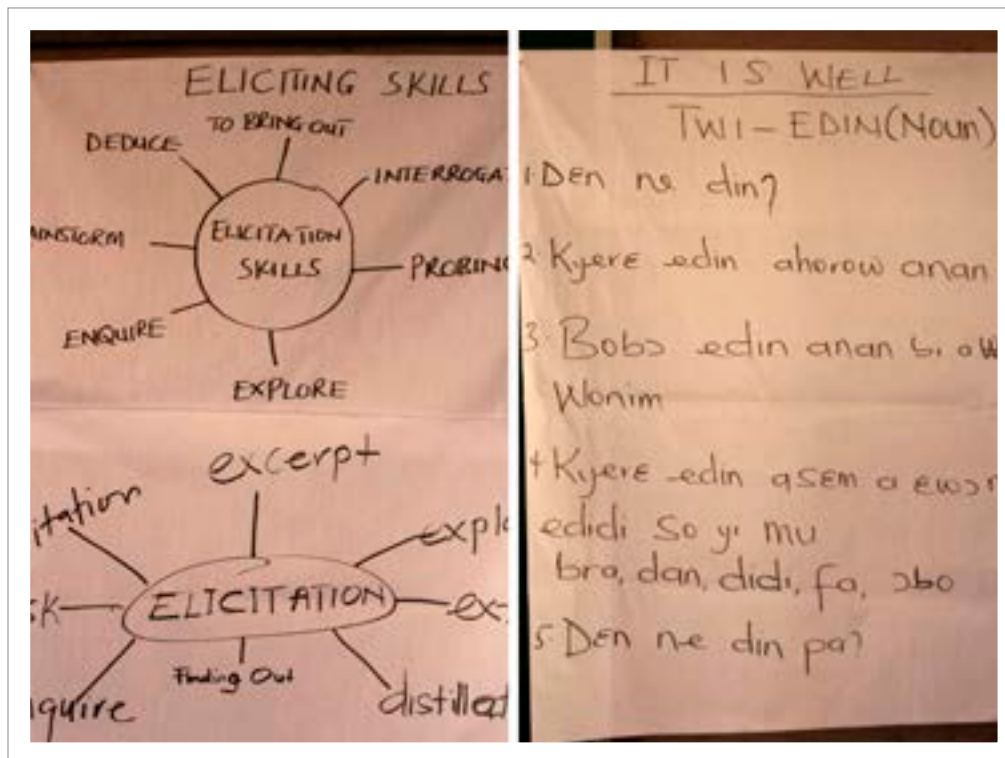 ELICITING SKILLS
TO BRING OUT
DEDUCE
INTERROGA
AINSTORM
ELICITATION
SKILLS
PROBING
ENQUIRE
EXPLORE
excerpt
itation
explo
SK
ELICITATION
ex
Finding Out
quire
distillat
IT IS WELL
TWI - EDIN (Noun)
1. Dɛn ne din?
2. Kyerɛ edin ahorow anan
3. Bobɔ edin anan bi a w
Wonim
4. Kyerɛ edin asɛm a ɛwɔ
edidi so yi mu
bra, dan, didi, fa, ɔbo
5. Dɛn ne din pa?